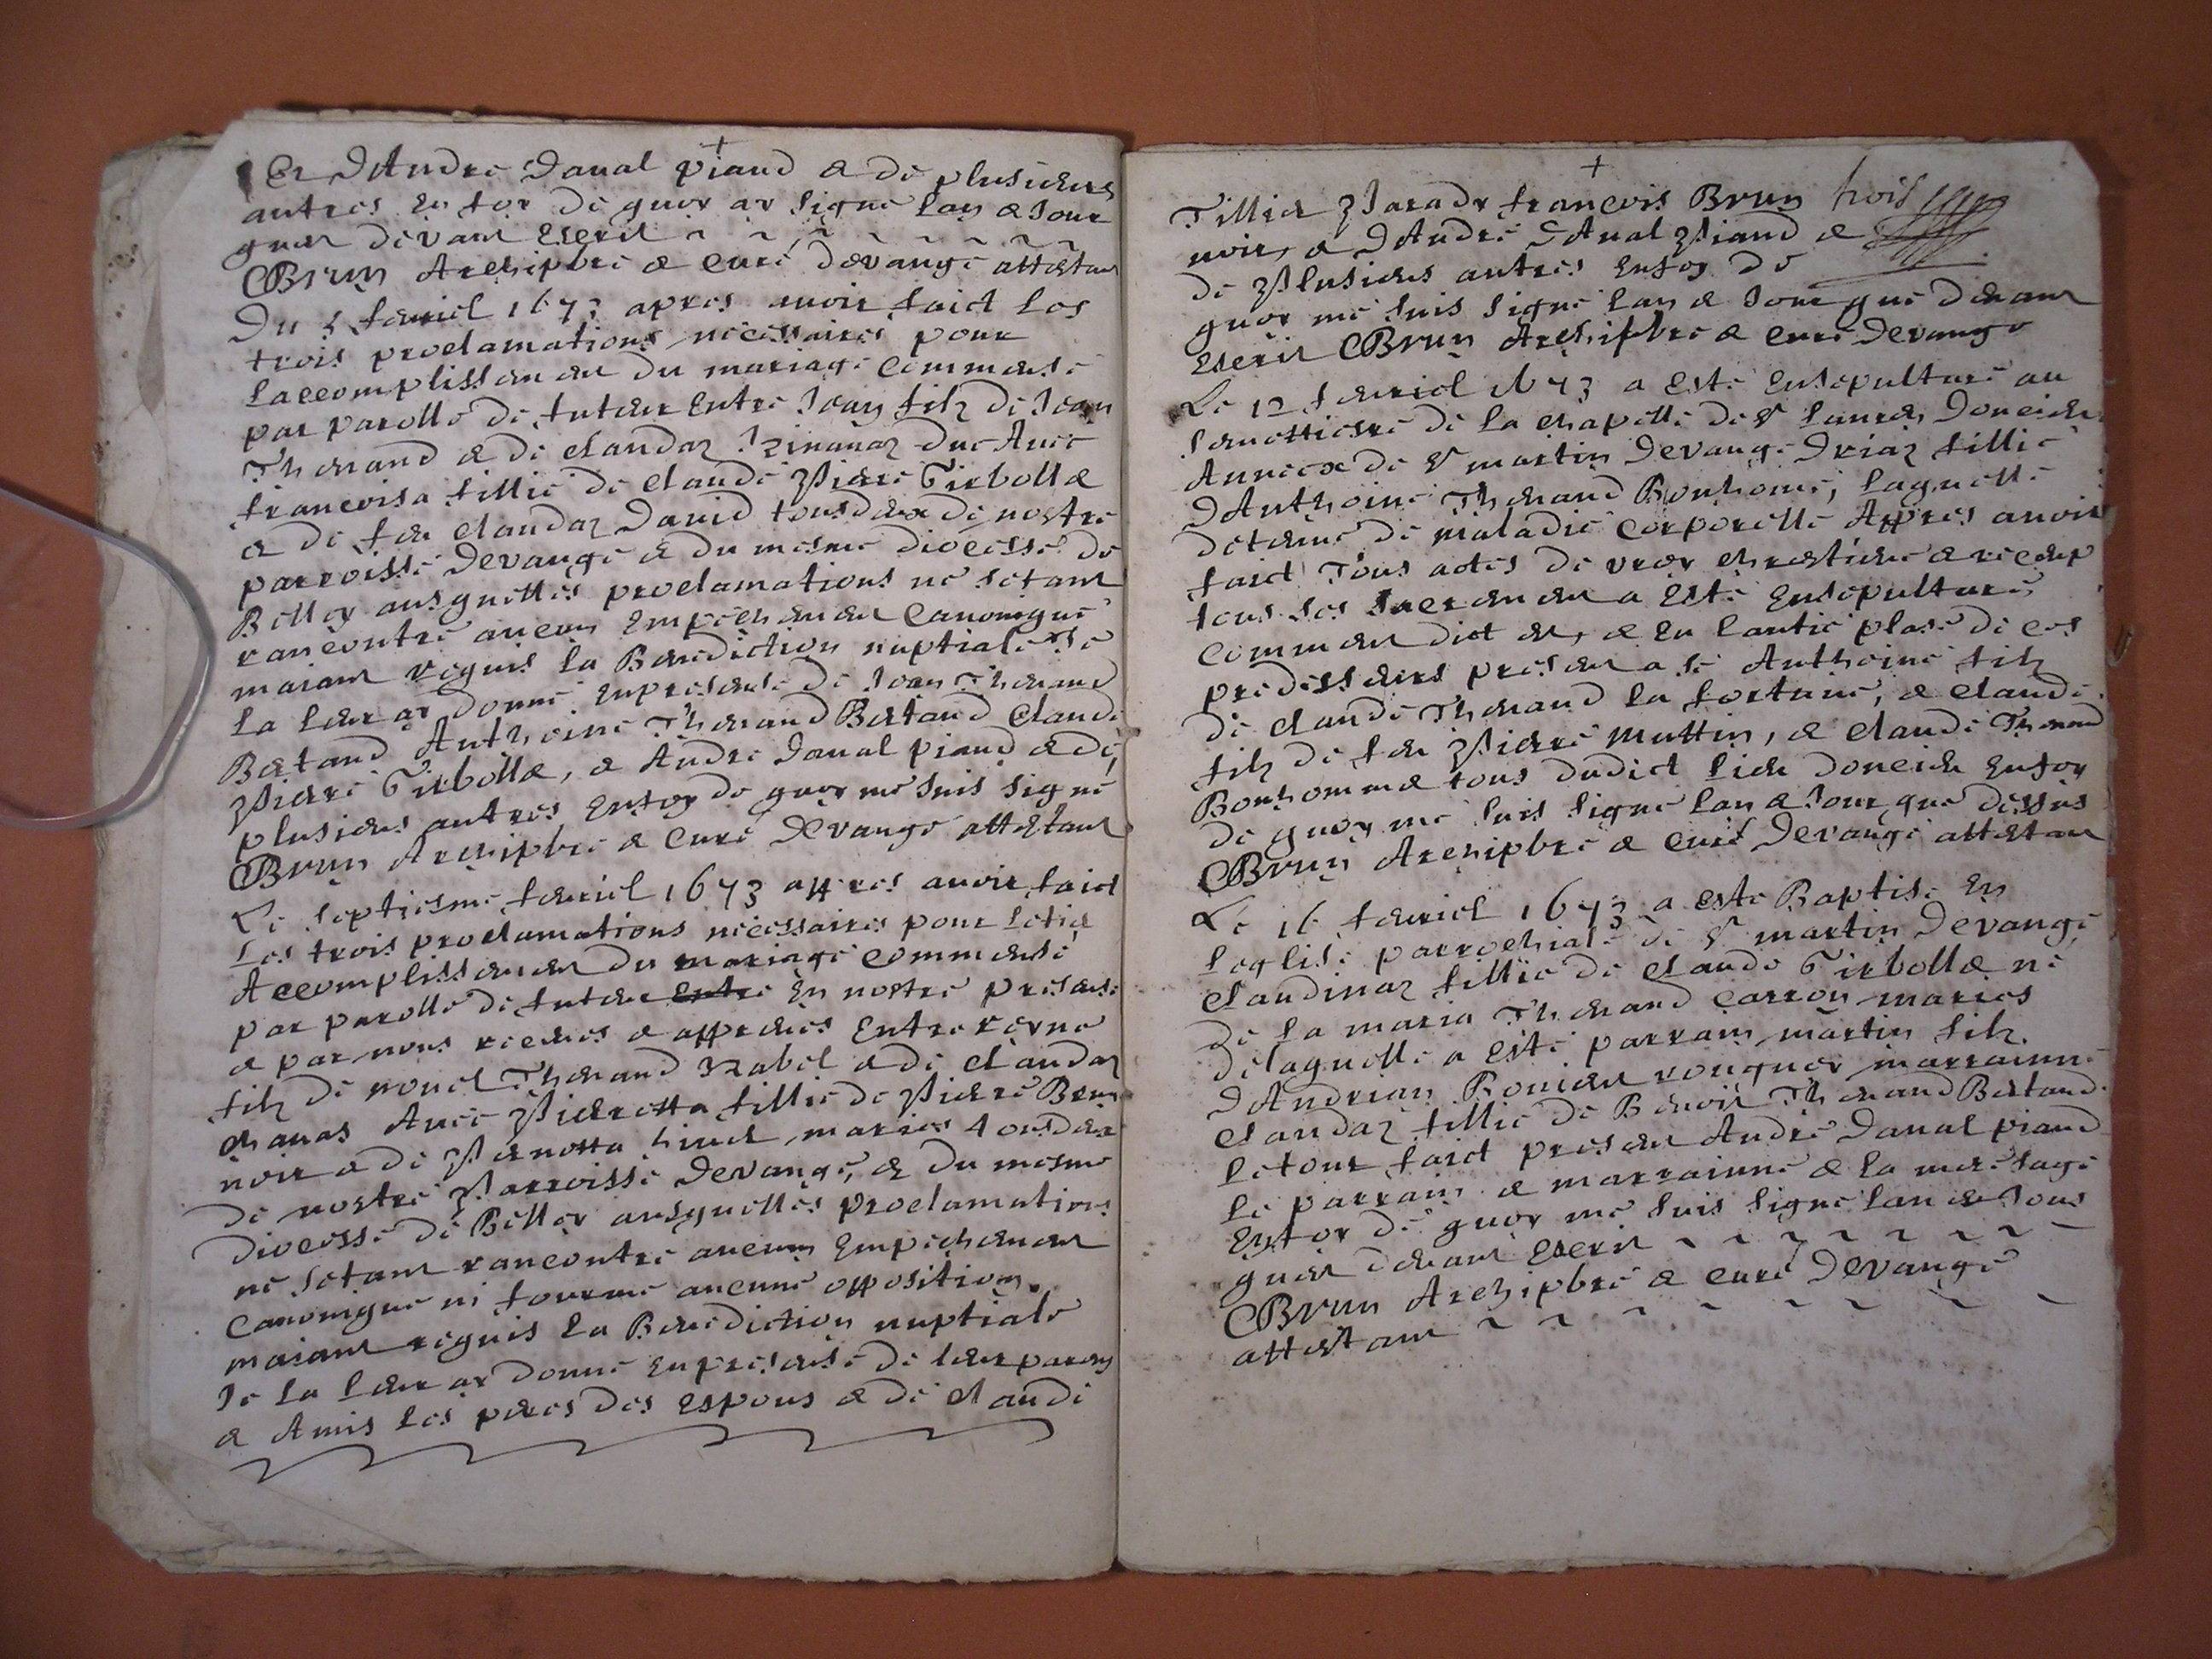 Et dAndre Daual piaud & de plusieurs
autres en foy de quoy ay signe lan & Jour
que devant Escrit
Brun Archipbre & cure devange attestant
Du feurier 1673 apres auoir faict les
trois proclamations necessaires pour
laccomplissement du mariage commense
par parolle de futeur Entre Jean filz de Jean
Thenand & de claudaz duc Auec
francoisa fillie de claude Pierre Girbollet
& de feu claudaz Dauid tous deux de nostre
parroisse devange & du mesme diocesse de
Belley ausquelles proclamations ne setant
rancontre aucun Empechement Canonique
maiant requis la Benediction nuptiale Je
la leur ay donne en presense de Jean Thenand
Betand Anthoine Thenand Betand Claude
Pierre Girbollet, & Andre Daual piaud & de
plusieurs autres En foy de quoy me suis signe
Brun Archipbre & Cure Devange attestant
Le septiesme feurier 1673 appres auoir faict
Les trois proclamations necessaires pour letier
Accomplissement du mariage commense
par parolle de futeur entre En nostre presense
& par nous receues & apprieues Entre
filz de nouel Thenand & de claudaz
chanas Auec Pieretta fillie de Pierre Brun
noir & de Pernetta maries tous deux
de nostre Parroisse Devange, & du mesme
diocesse de Belley ausquelles proclamations
ne setant rancontre aucun Empechement
Canonique ni fourme aucune opposition
maiant requis la Benediction nuptiale
Je la leur ay donne en presense de leur parens
& Amis les peres des espous & de claude
Tillier Paradx francois Brun
noir, & dAndre dAual Piaud &
de Plusieurs autres En foy de
quoy me suis signe lan & Jour que deuant
Escrit Brun Archipbre & cure Devange
Le 12 feurier 1673 a este Ensepulture au
semettiere de la chapelle de St laurens Donciou
Annexe de St martin devange Driaz fillie
dAnthoine Thenand Bonhome, laquelle
detenue de maladie Corporelle Appres auoir
faict Tous actes de vray chrestiene & receup
tous les sacremen a Este Ensepulturé
comme dict est, & en lantie plase de ces
predesseurs present a se Anthoine filz
de claude Thenand la fortune, & claude
filz de feu Pierre Muttin, & claude Thenand
Bonhomme tous dudict lieu donciou En foy
de quoy me suis signe lan & Jour que dessus
Brun Archipbre & cure Devange attestant
Le 16 feurier 1673 a este Baptise En
leglise parrochiale de St martin Devange
Claudinaz fillie de claude Girbollet ne
de la maria Thenand Carron maries
delaquelle a este parrain martin filz
dAndrian Bouier rouquer marrainne
claudaz fillie de Benoit Thenand Betand
letout faict present Andre Daual piaud
le parrain & marrainne & la mere sage
En foy de quoy me suis signe lan & Jour
que deuant Escrit
Brun Archipbre & cure Devange
attestant